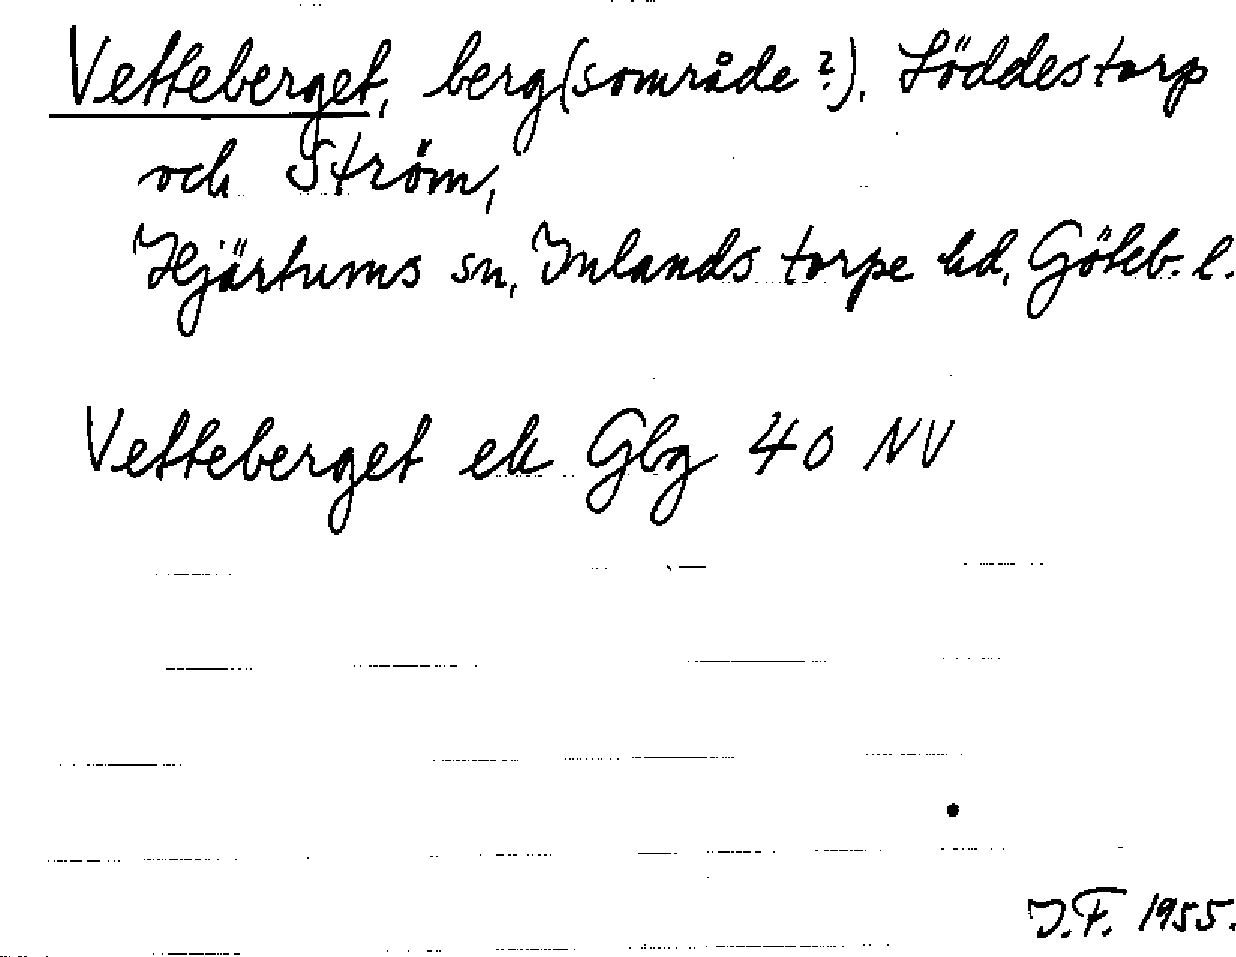 Vetteberget, berg(sområde?). Löddestorp
och Ström,
Hjärtums sn, Inlands torpe hd, Göteb. l.
Vetteberget ek Gbg 40 NV
J.F. 1955.